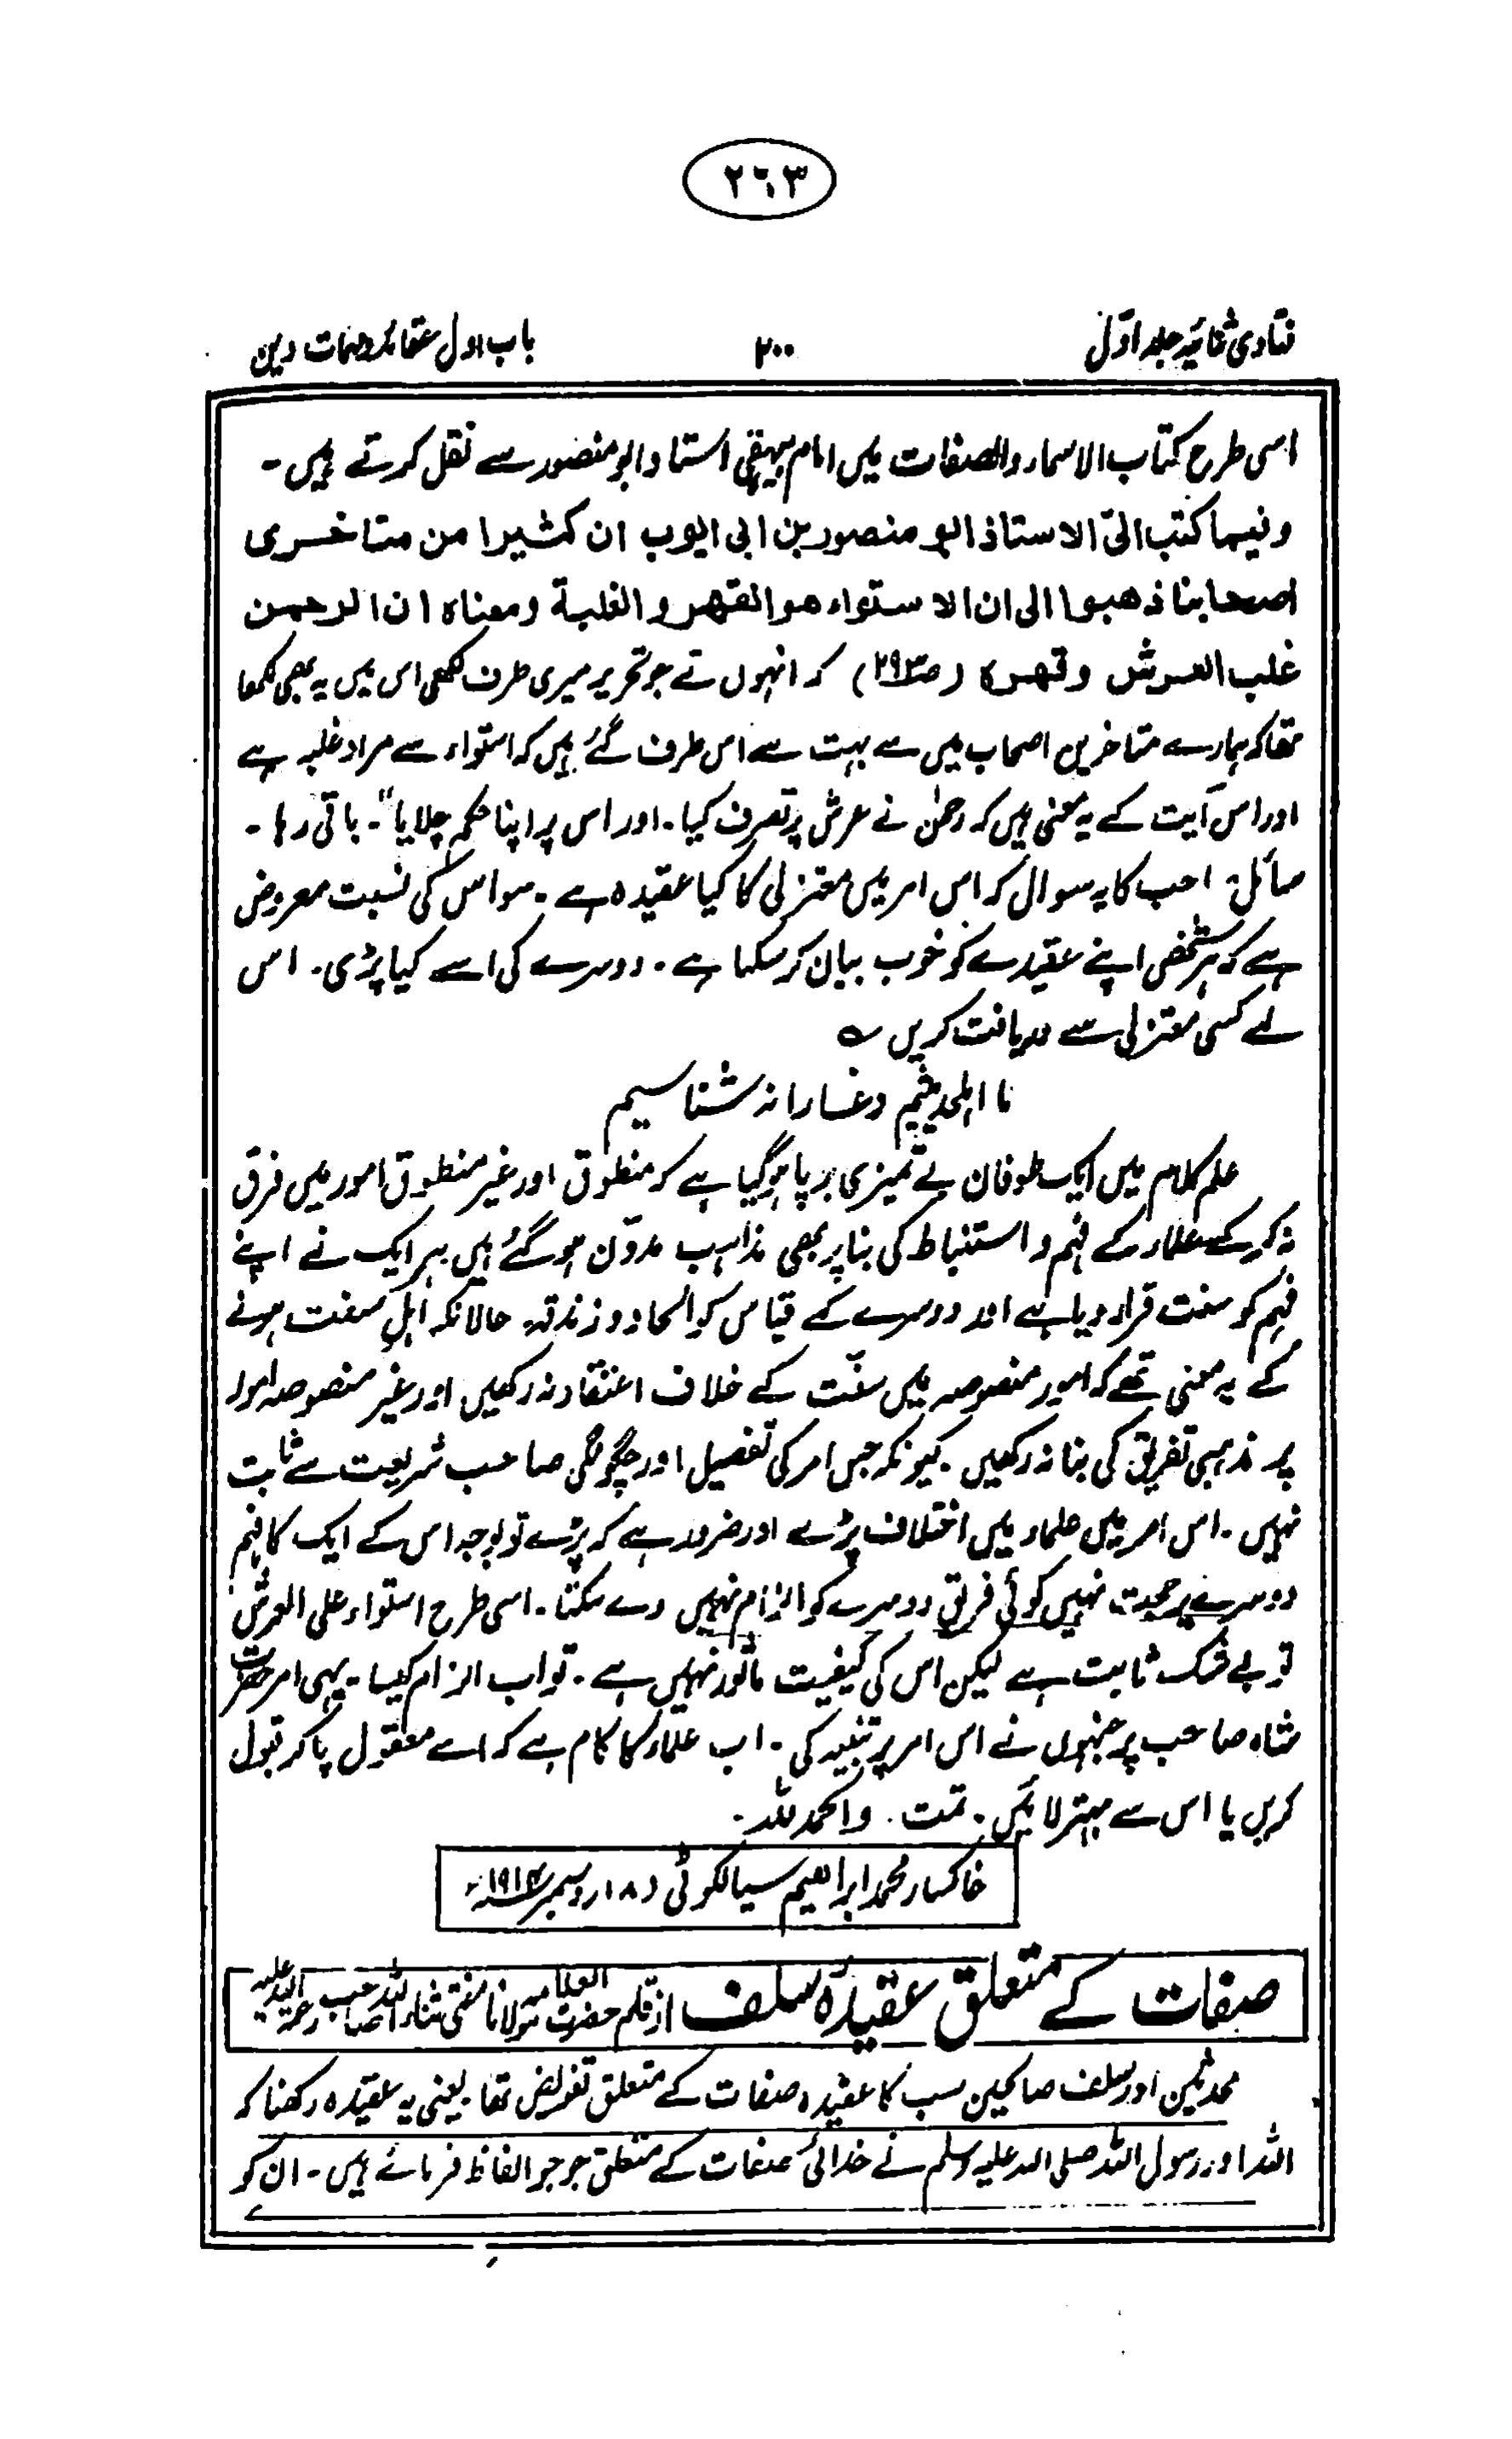 ۲۶۳
فتاوی ثنائیہ جلد اوّل
۲۰۰
باب اول عقائد و مہمات دین
اسی طرح کتاب الاسماء والصفات میں امام بیہقی استاد ابو منصور سے نقل کرتے ہیں۔
وفیما کتب الیّ الاستاذ ابو منصور بن ابی ایوب ان کثیرا من متاخری
اصحابنا ذھبوا الی ان الاستواء ھو القھر والغلبة ومعناہ ان الرحمن
غلب العرش وقھرہ (ص۲۹۳) کہ انہوں نے جو تحریر میری طرف لکھی اس میں یہ بھی لکھا
تھا کہ ہمارے متاخرین اصحاب میں سے بہت سے اس طرف گئے ہیں کہ استواء سے مراد غلبہ ہے
اور اس آیت کے یہ معنی ہیں کہ رحمٰن نے عرش پر تصرف کیا۔ اور اس پر اپنا حکم چلایا"۔ باقی رہا۔
سائل صاحب کا یہ سوال کہ اس امر میں معتزلی کا کیا عقیدہ ہے۔ سو اس کی نسبت معروض
ہے کہ ہر شخص اپنے عقیدے کو خوب بیان کر سکتا ہے۔ دوسرے کی اسے کیا پڑی۔ اس
لئے کسی معتزلی سے دریافت کریں ؎
ما اہلحدیثیم دغا را نہ شناسیم
علم کلام میں ایک طوفان بے تمیزی برپا ہو گیا ہے کہ منطوق اور غیر منطوق امور میں فرق
نہ کر کے علماء کے فہم و استنباط کی بنا پر بھی مذاہب مدوّن ہو گئے ہیں ہر ایک نے اپنے
فہم کو سنت قرار دیا ہے اور دوسرے کے قیاس کو الحاد و زندقہ۔ حالانکہ اہل سنت ہونے
کے یہ معنی تھے کہ امور منصوصہ میں سنّت کے خلاف اعتقاد نہ رکھیں اور غیر منصوصہ امور
پر مذہبی تفریق کی بنا نہ رکھیں۔ کیونکہ جس امر کی تفصیل اور چگونگی صاحب شریعت سے ثابت
نہیں۔ اس امر میں علماء میں اختلاف پڑے اور ضرور ہے کہ پڑے تو بوجہ اس کے ایک کا فہم
دوسرے پر حجت نہیں کوئی فریق دوسرے کو الزام نہیں دے سکتا۔ اسی طرح استواء علی العرش
تو بے شک ثابت ہے لیکن اس کی کیفیت ماثور نہیں ہے۔ تو اب الزام کیسا۔ یہی امر حضرت
شاہ صاحب پر جنہوں نے اس امر پر تنبیہ کی۔ اب علماء کا کام ہے کہ اسے معقول پا کر قبول
کریں یا اس سے بہتر لائیں۔ تمت۔ والحمد للہ۔
خاکسار محمد ابراھیم سیالکوٹی (۱۸ دسمبر ۱۹۱۴ء
صفات کے متعلق عقیدۂ سلف از قلم حضرت العلامہ مولانا مفتی ثناء اللہ صاحب رحمۃ اللہ علیہ
محدثین اور سلف صالحین سب کا عقیدہ صفات کے متعلق تفویض تھا۔ یعنی یہ عقیدہ رکھنا کہ
اللہ اور رسول اللہ صلی اللہ علیہ وسلم نے خدائی صفات کے متعلق جو جو الفاظ فرمائے ہیں۔ ان کو